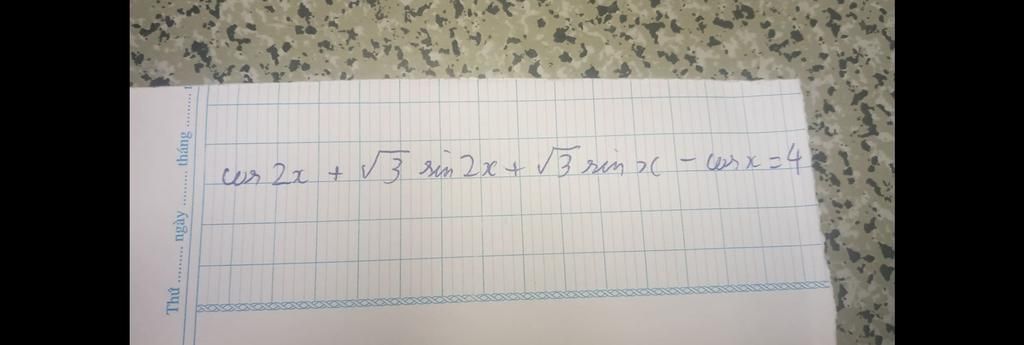 cos 2x + √3 sin 2x + √3 sin x - cos x = 4
Thứ ......... ngày ......... tháng .........